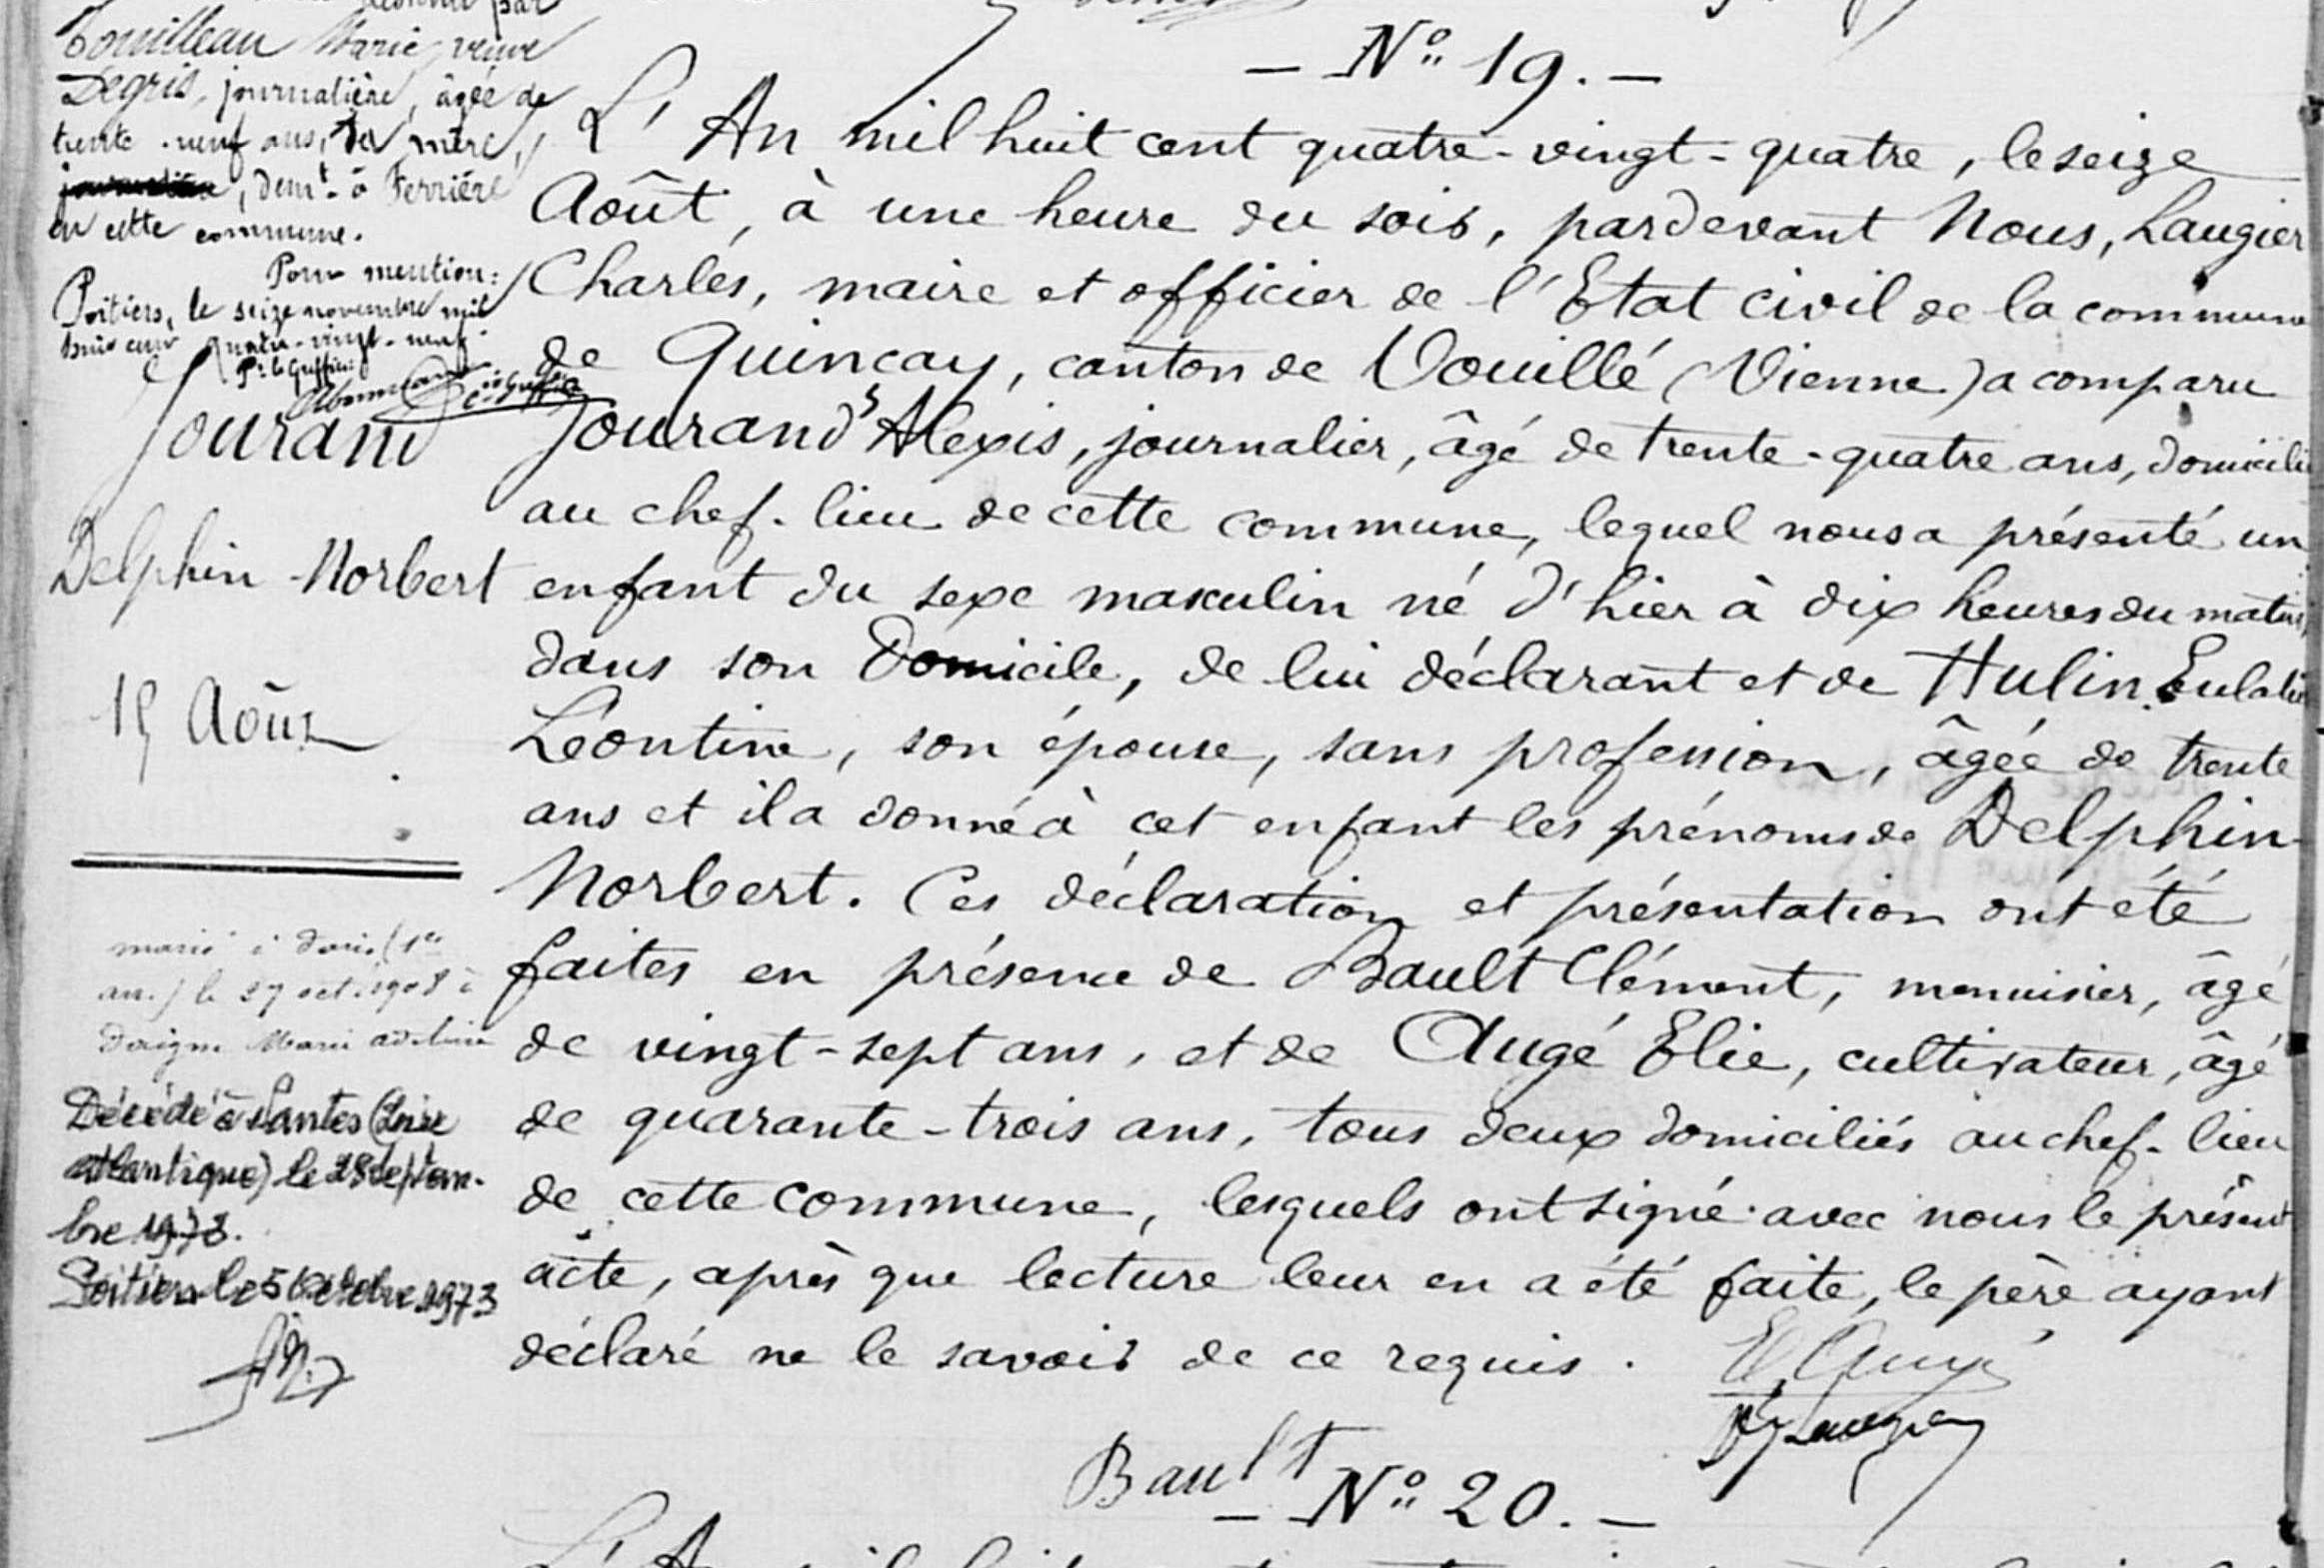 Touilleau Marie, veuve
Degris, journalière, âgée de
trente-neuf ans, sa mère,
journalière, demt. à Ferrière
en cette commune.
Pour mention:
Poitiers, le seize novembre mil
huit cent quatre-vingt-neuf.
Pr. le Greffier:
Jourand
Delphin-Norbert
15 Août
marié à Paris (1er
arr.) le 27 oct. 1908 à
Daigne Marie
Décédé à Nantes (Loire
atlantique) le 28 Septem-
bre 1973.
Poitiers le 5 Octobre 1973
- No. 19. -
L'An mil huit cent quatre-vingt-quatre, le seize
Août, à une heure du soir, pardevant Nous, Laugier
Charles, maire et officier de l'Etat civil de la commune
de Quincay, canton de Vouillé (Vienne) a comparu
Jourand Alexis, journalier, âgé de trente-quatre ans, domicilié
au chef-lieu de cette commune, lequel nous a présenté un
enfant du sexe masculin né d'hier à dix heures du matin,
dans son Domicile, de lui déclarant et de Hulin Eulalie
Léontine, son épouse, sans profession, âgée de trente
ans et il a donné à cet enfant les prénoms de Delphin-
Norbert. Ces déclaration et présentation ont été
faites en présence de Bault Clément, menuisier, âgé
de vingt-sept ans, et de Augé Elie, cultivateur, âgé
de quarante-trois ans, tous deux domiciliés au chef-lieu
de cette commune, lesquels ont signé avec nous le présent
acte, après que lecture leur en a été faite, le père ayant
déclaré ne le savoir de ce requis.
E. Augé
Laugier
Bault
- No. 20. -